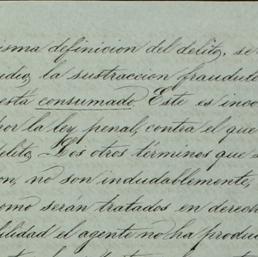 isma definicion del delito, se
udio, la sustraccion fraudule
está consumado. Este es inco
por la ley penal, contra el que
delito. Los otros términos que s
on, no son indudablemente,
como serán tratados en derech
ilidad el agente no ha produc